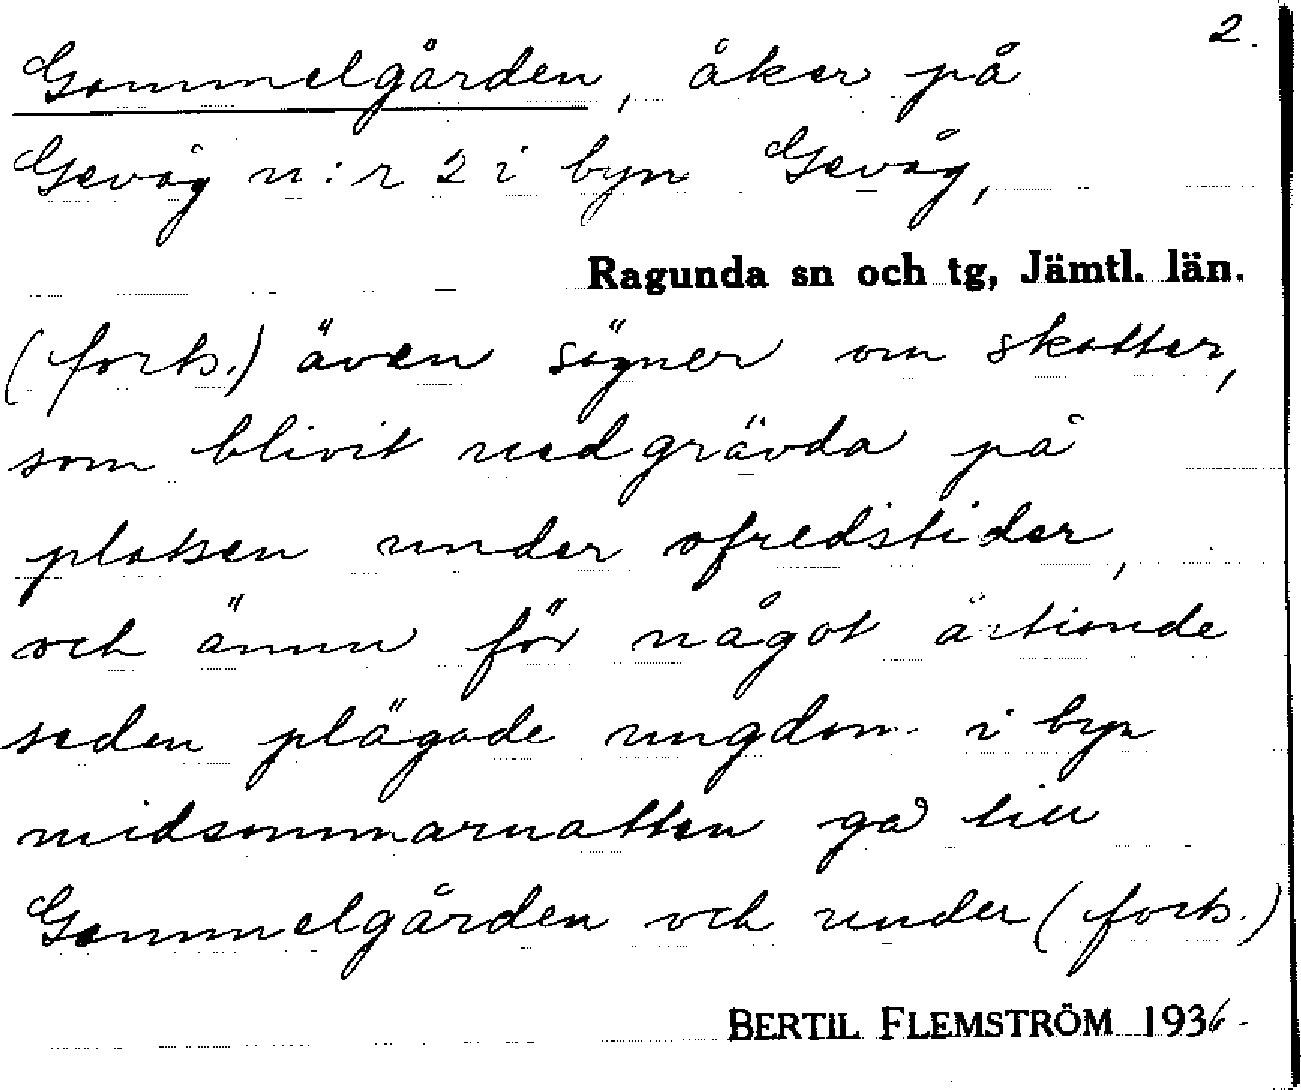 2.
Gammelgården, åker på
Gevåg n:r 2 i byn Gevåg,
Ragunda sn och tg, Jämtl. län.
(forts.) även sägner om skatter,
som blivit nedgrävda på
platsen under ofredstider,
och ännu för något årtionde
sedan plägade ungdom i byn
midsommarnatten gå till
Gammelgården och under (forts.)
BERTIL FLEMSTRÖM 1936